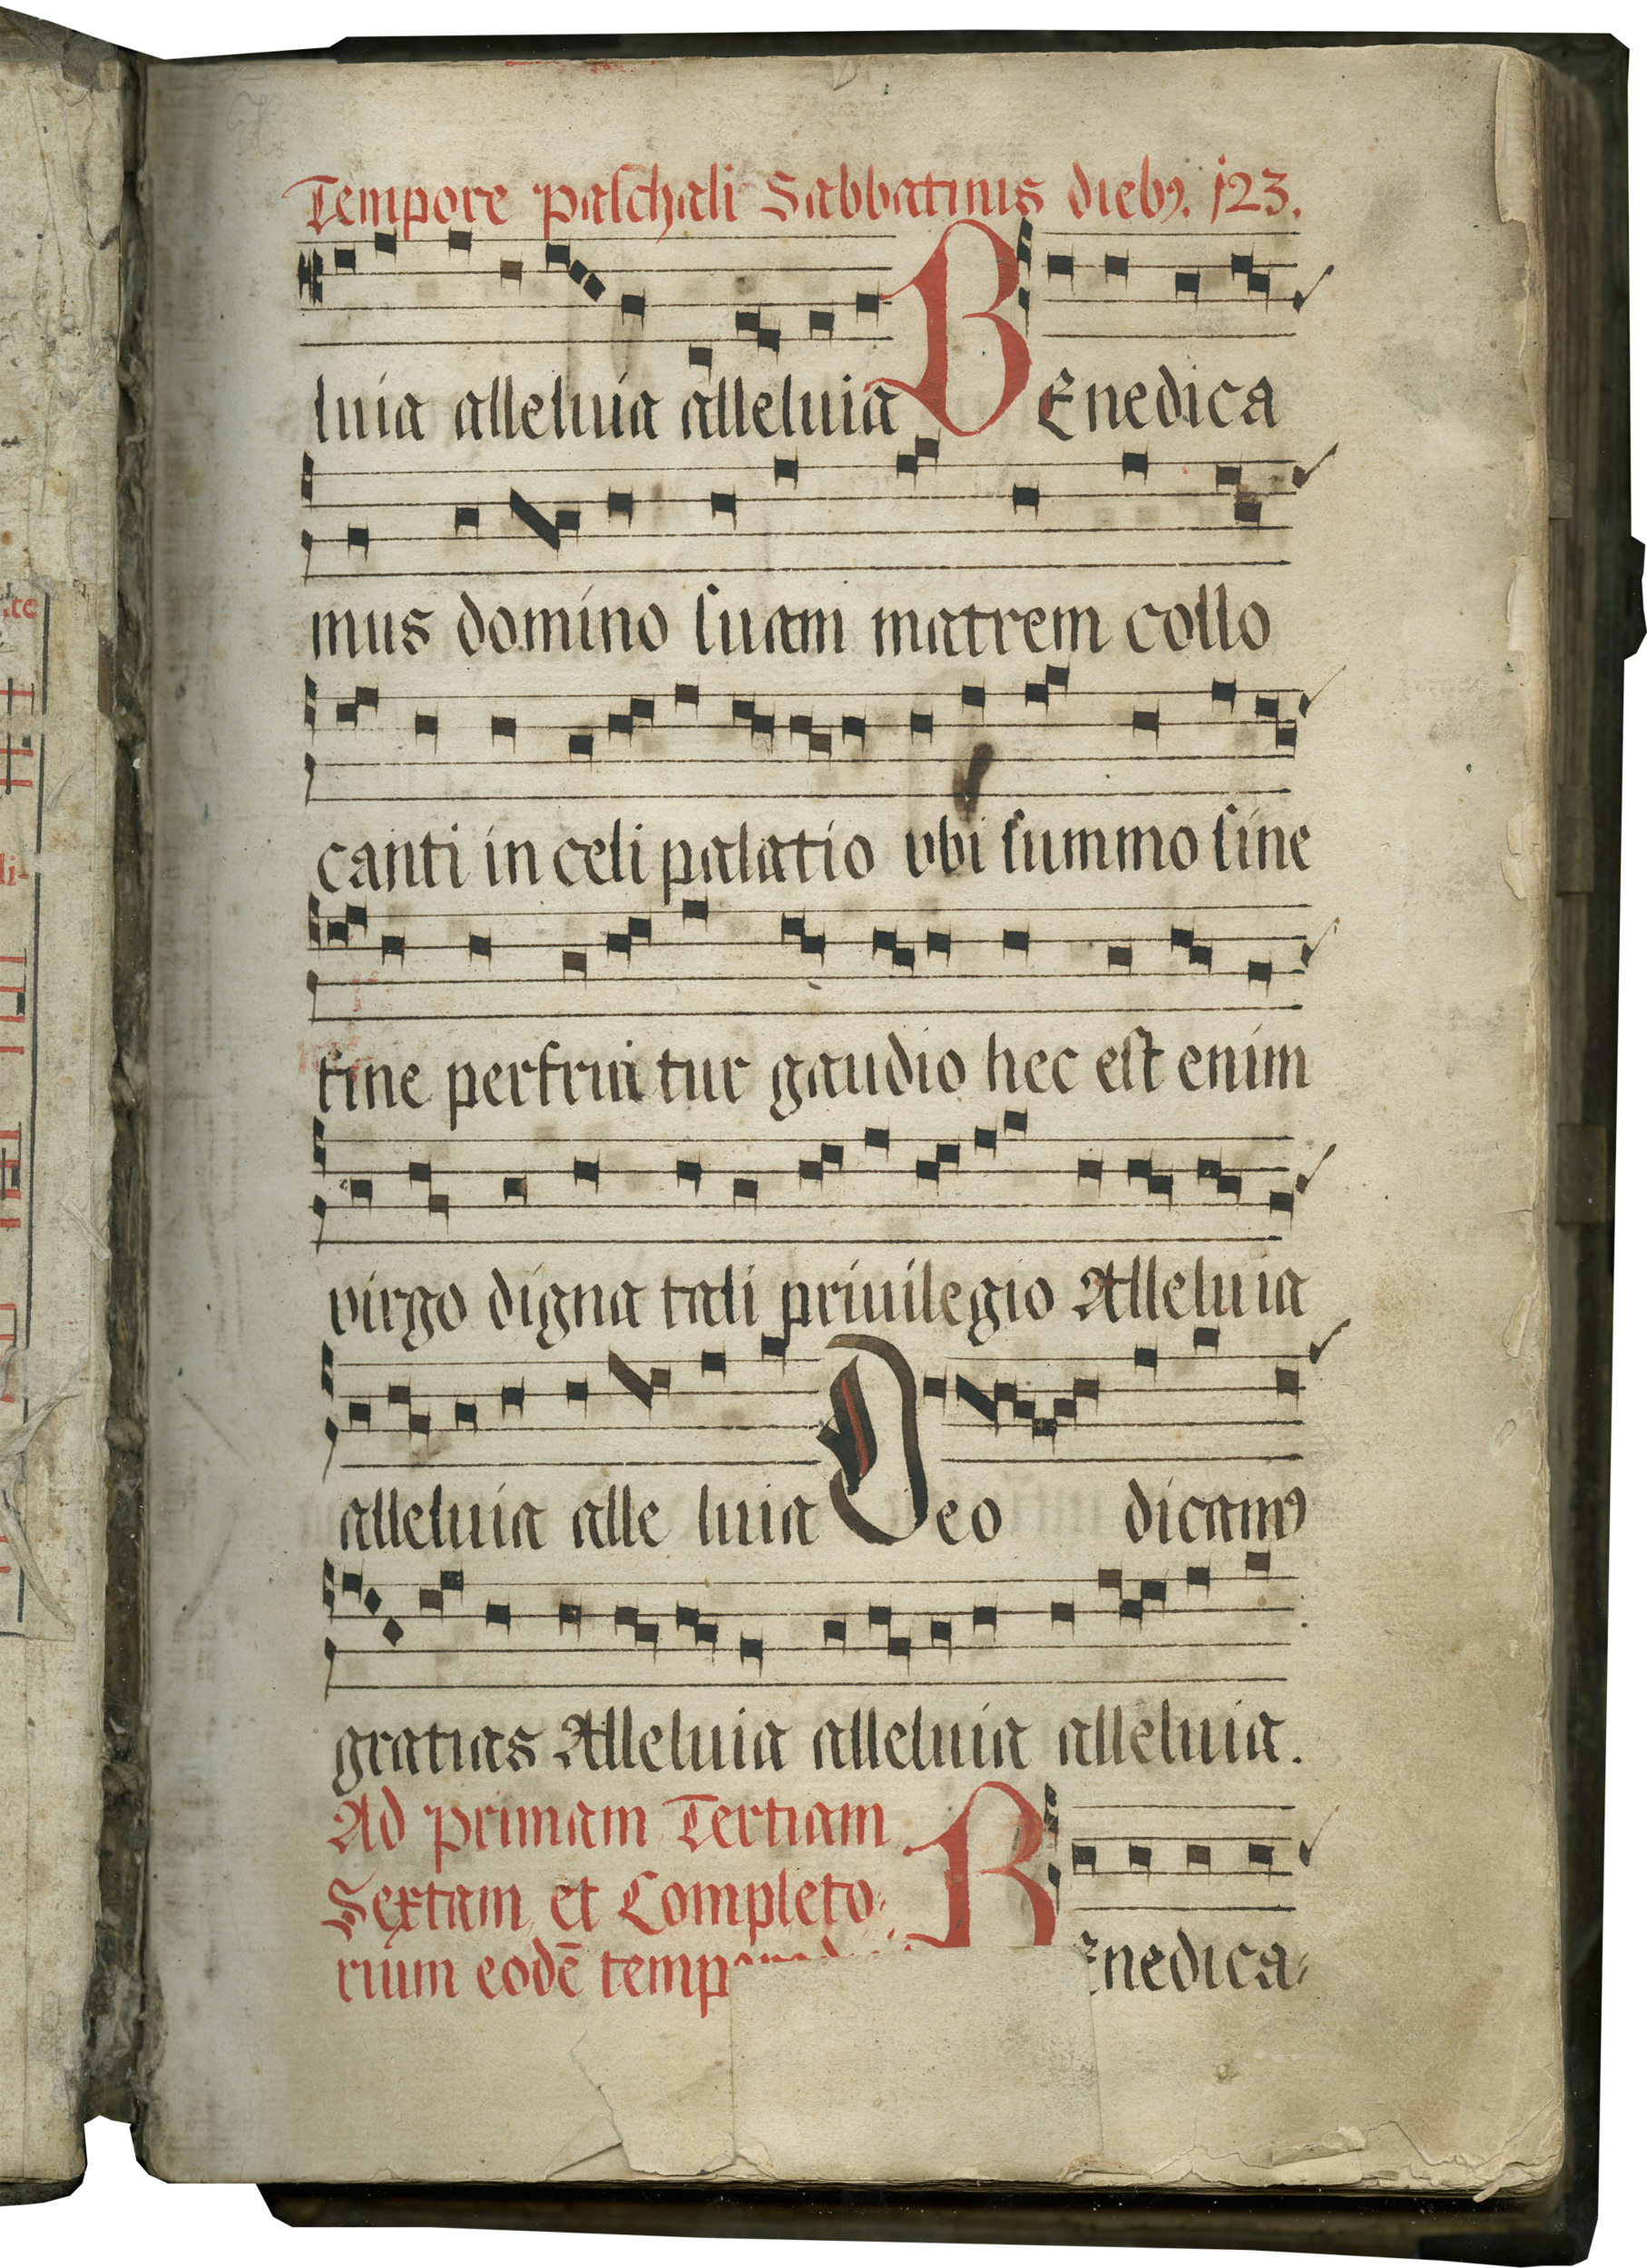 Tempore paſchali Sabbatinis diebꝰ. 123.
luia alleluia alleluia BEnedica
mus domino ſuam matrem collo
canti in celi palatio vbi ſummo ſine
fine perfrui tur gaudio hec eſt enim
virgo digna tali priuilegio Alleluia
alleluia alle luia Deo dicamꝰ
gratias Alleluia alleluia alleluia.
Ad primam Tertiam
Sextam et Completo
rium eodē
BEnedica